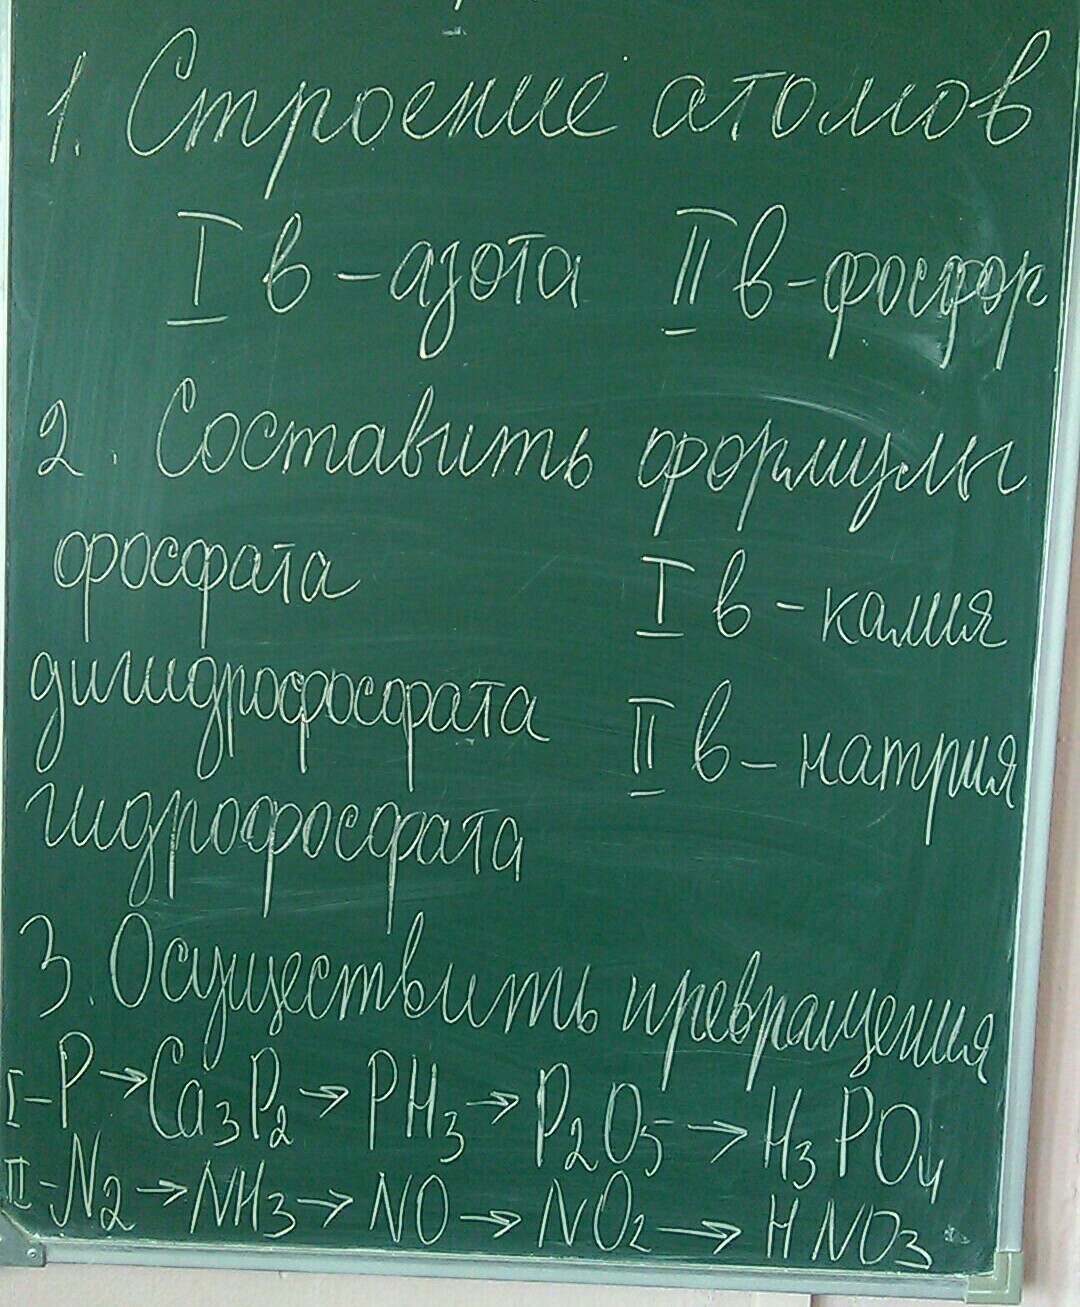 1. Строение атомов
I в - азота II в - фосфор
2. Составить формулы
фосфата I в - калия
дигидрофосфата II в - натрия
гидрофосфата
3. Осуществить превращения
I - P → Ca₃P₂ → PH₃ → P₂O₅ → H₃PO₄
II - N₂ → NH₃ → NO → NO₂ → HNO₃